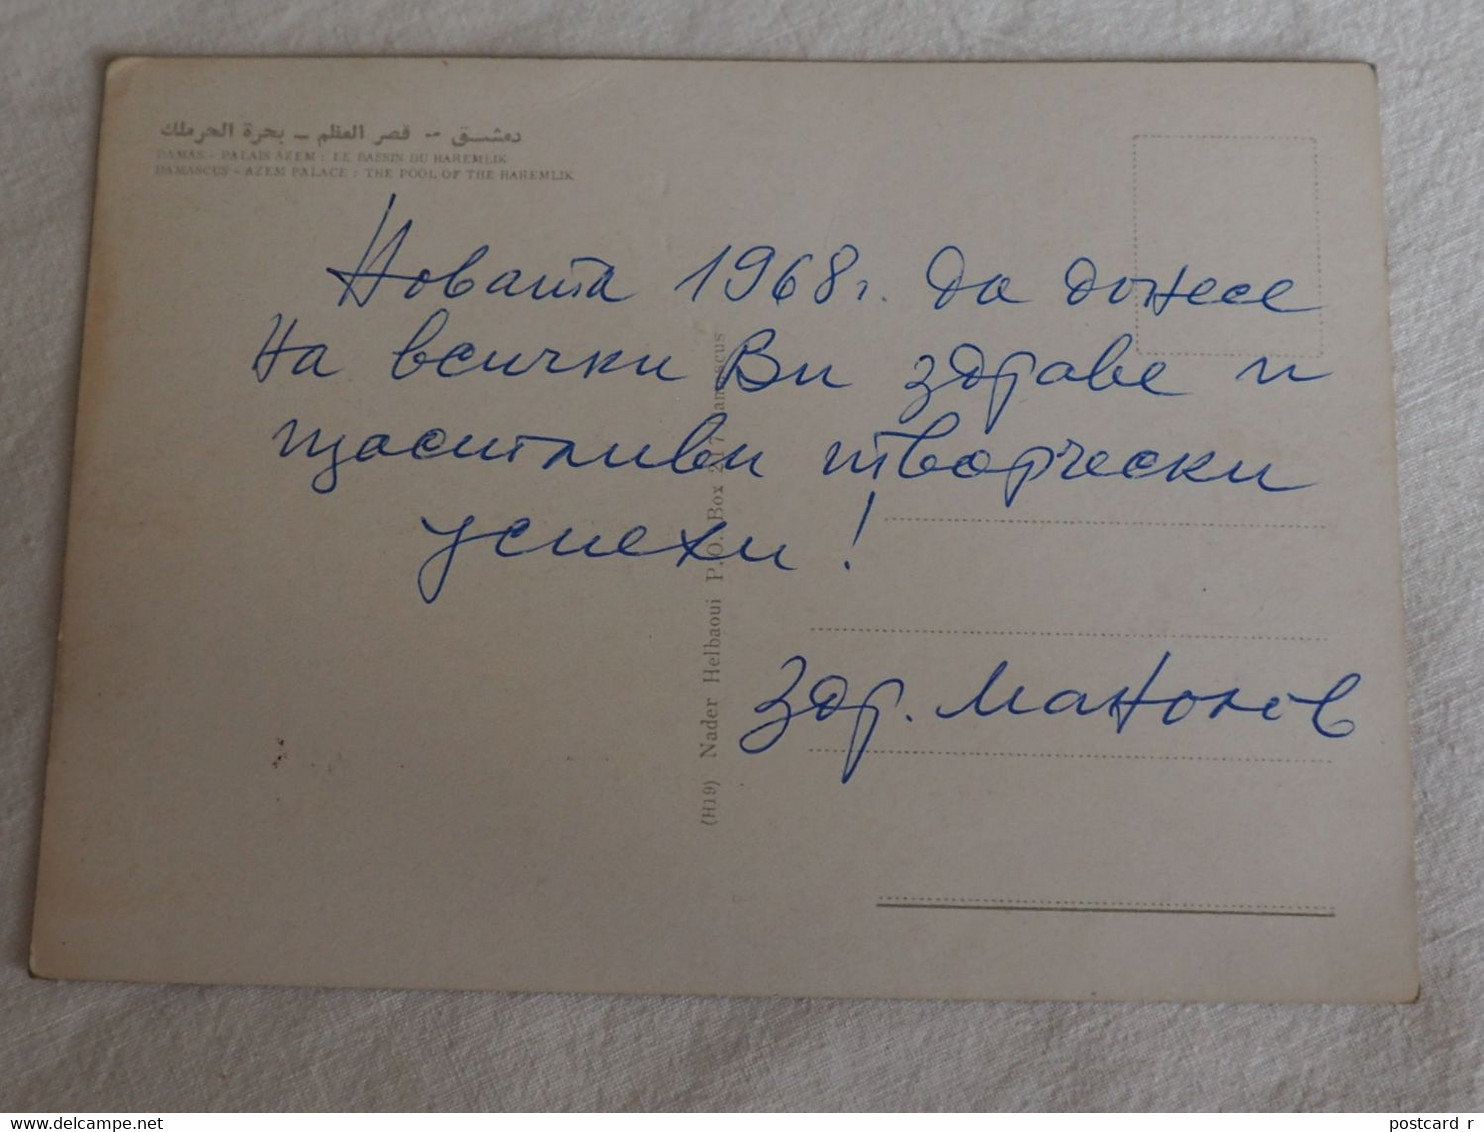 دمشق -- قصر العظم - بحرة الحرملك
DAMAS - PALAIS AZEM : LE BASSIN DU HAREMLIK
DAMASCUS - AZEM PALACE : THE POOL OF THE HAREMLIK
Новата 1968 г. да донесе
на всички Ви здраве и
щастливи творчески
успехи!
Здр. Манолов
(H19) Nader Helbaoui P.O. Box Damascus
postcard r